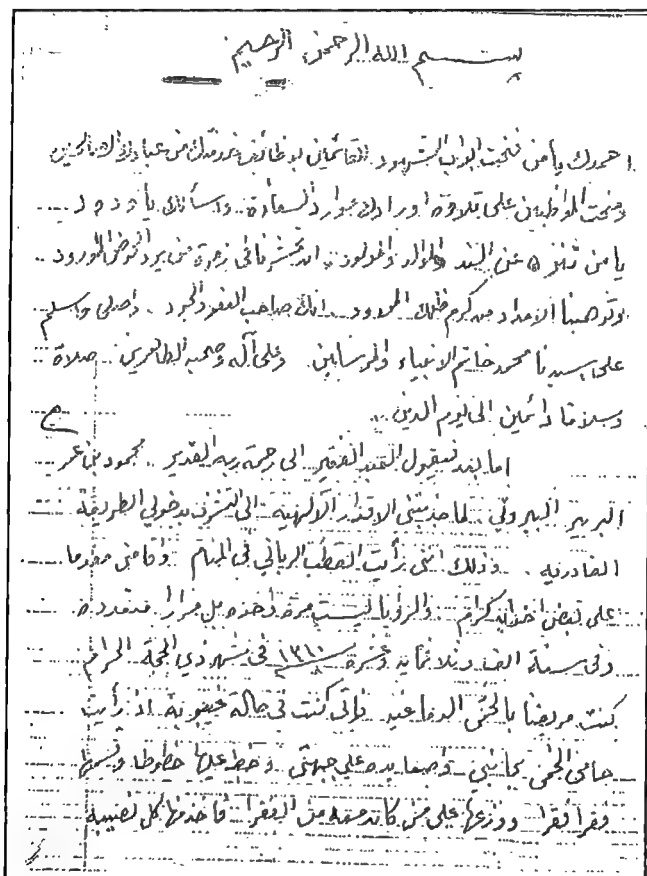 بسم الله الرحمن الرحيم
احمدك يا من فتحت ابواب الشهود للقائمين بوظائف خدمتك من عبادك الصالحين
ومنحت المواظبين على تلاوة اورادك موارد السعادة واسألك يا ودود
يا من تنزه عن الند والوالد والمولود ان تحشرنا في زمرة من يرد الحوض المورود
وتوهبنا الامداد من كرم فضلك الممدود انك صاحب العفو والجود واصلي واسلم
على سيدنا محمد خاتم الانبياء والمرسلين وعلى آله وصحبه الطاهرين صلاة
وسلاما دائمين الى يوم الدين
اما بعد فيقول العبد الفقير الى رحمة ربه القدير محمود بن عمر
البربير البيروتي لما جذبتني الاقدار الآلهية الى التشرف بدخولي الطريقة
القادرية وذلك انني رأيت القطب الرباني في المنام
على بعض اخوان كرام والرؤيا ليست مرة واحده بل مرارا متعدده
وفي سنة الف وثلاثمائه وعشرة ١٣١٠ في شهر ذي الحجة الحرام
كنت مريضا بالحمى الدماغيه واني كنت في حالة غيبوبة اذ رأيت
بجانبي واضعا يده على جبهتي وخط عليها خطوطا وقسمها
فقرا فقرا ووزعها على من كان معه من الفقرا فاخذ منها كل نصيبه